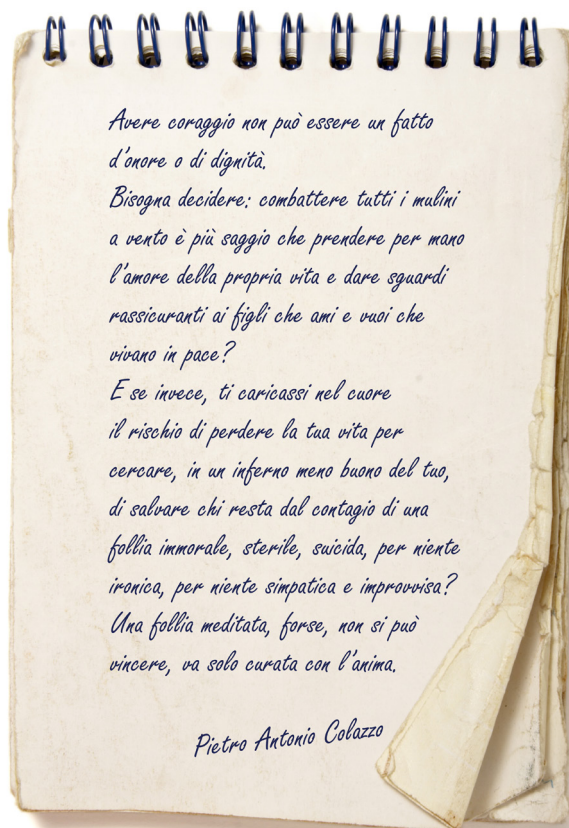 Avere coraggio non può essere un fatto
d'onore o di dignità.
Bisogna decidere: combattere tutti i mulini
a vento è più saggio che prendere per mano
l'amore della propria vita e dare sguardi
rassicuranti ai figli che ami e vuoi che
vivano in pace?
E se invece, ti caricassi nel cuore
il rischio di perdere la tua vita per
cercare, in un inferno meno buono del tuo,
di salvare chi resta dal contagio di una
follia immorale, sterile, suicida, per niente
ironica, per niente simpatica e improvvisa?
Una follia meditata, forse, non si può
vincere, va solo curata con l'anima.
Pietro Antonio Colazzo